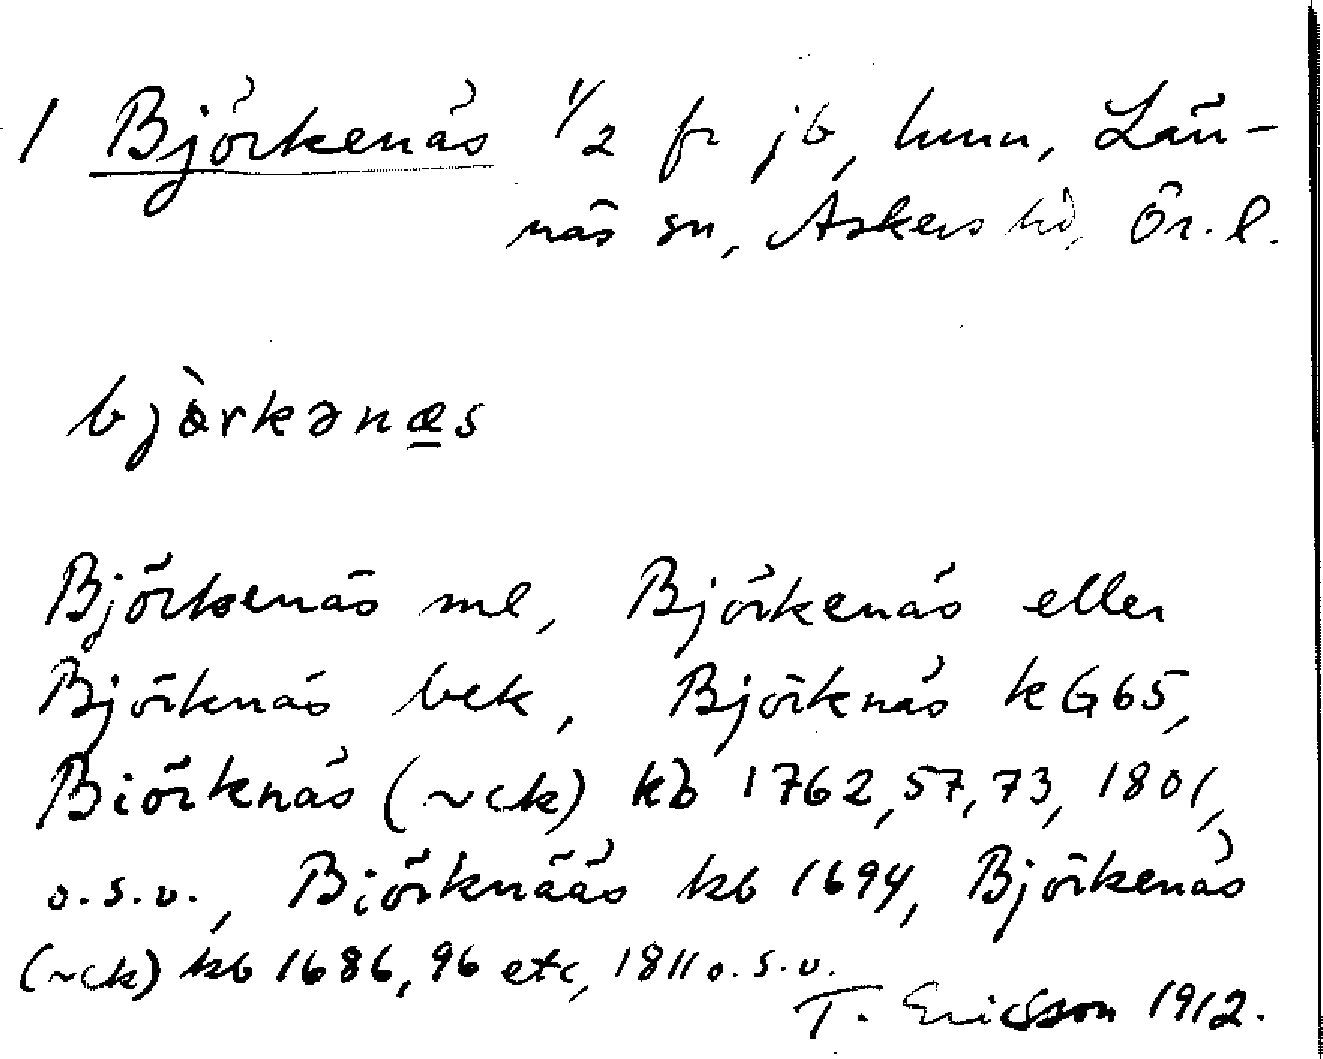 1 Björkenäs 1/2 fr jb, hmn, Län-
näs sn, Askers hd, Ör. l.
bjòrkənæs
Björkenäs ml, Björkenäs eller
Björknäs bek, Björknäs kG65,
Biörknäs (~ck) kb 1762,57,73, 1801,
o.s.v., Biörknääs kb 1694, Björkenäs
(~ck) kb 1686, 96 etc, 1811 o.s.v.
T. Ericsson 1912.